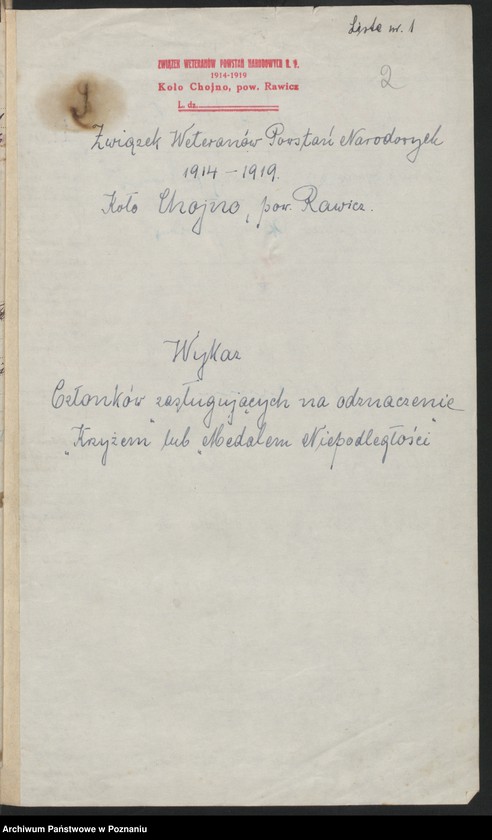 Lista nr. 1
2
ZWIĄZEK WETERANÓW POWSTAŃ NARODOWYCH R. P.
1914-1919
Koło Chojno, pow. Rawicz
L. dz.
Związek Weteranów Powstań Narodowych
1914 – 1919.
Koło Chojno, pow. Rawicz.
Wykaz
Członków zasługujących na odznaczenie
„Krzyżem" lub „Medalem Niepodległości"
Archiwum Państwowe w Poznaniu